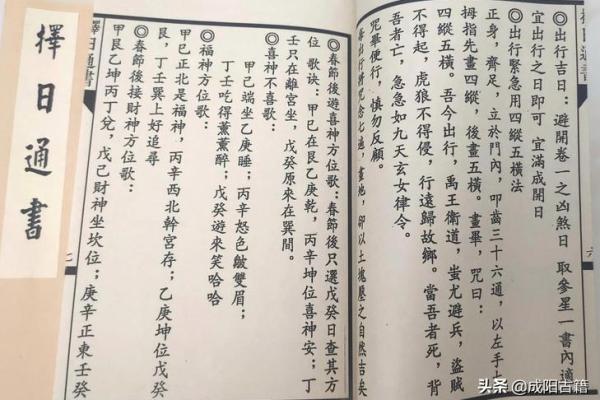 擇日通書
六
◎出行吉日：避開卷一之凶煞日 取參星一書內適
宜出行之日即可 宜滿成開日
◎出行緊急用四縱五橫法
正身，齊足，立於門內，叩齒三十六通，以左手
拇指先畫四縱，後畫五橫。畫畢，咒曰：
四縱五橫。吾今出行，禹王衛道，蚩尤避兵，盜賊
不得起，虎狼不得侵，行遠歸故鄉。當吾者死，背
吾者亡，急急如九天玄女律令。
咒畢便行，慎勿反顧。
每出行將咒念七遍，畫地，卻以土塊壓之自然吉矣
◎春節後遊喜神方位歌：春節後只選戊癸日查其方
位 歌訣：甲己在艮乙庚乾，丙辛坤位喜神安；丁
壬只在離宮坐，戊癸原來在巽間。
◎喜神不喜歌：
甲己端坐乙庚睡；丙辛怒色皺雙眉；
丁壬吃得薰薰醉；戊癸遊來笑哈哈
◎福神方位歌：
甲己正北是福神，丙辛西北幹宮存；乙庚坤位戊艮
丁壬巽上好追尋
◎春節後接財神方位歌：
甲艮乙坤丙丁兌，戊己財神坐坎位；庚辛正東壬癸
擇日通書
七
擇日通書
头条 @成阳古籍